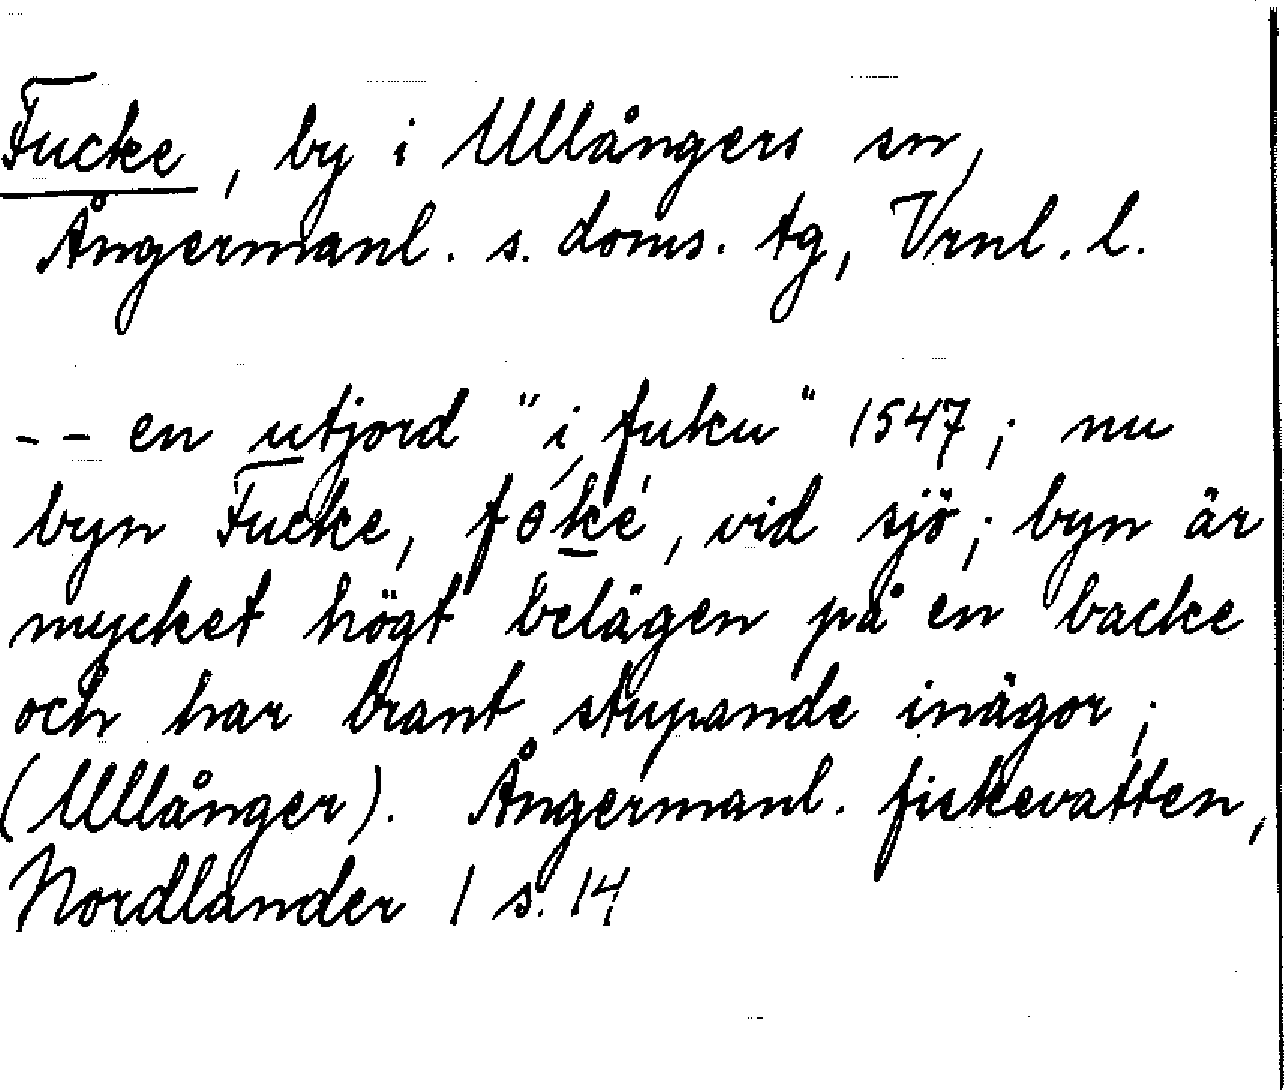 Fucke, by i Ullångers sn,
Ångermanl. s. doms. tg, Vrnl. l.
-- en utjord "i fuku" 1547; nu
byn Fucke, føke, vid sjö; byn är
mycket högt belägen på en backe
och har brant stupande inägor;
(Ullånger). Ångermanl. fiskevatten,
Nordlander 1 s. 14